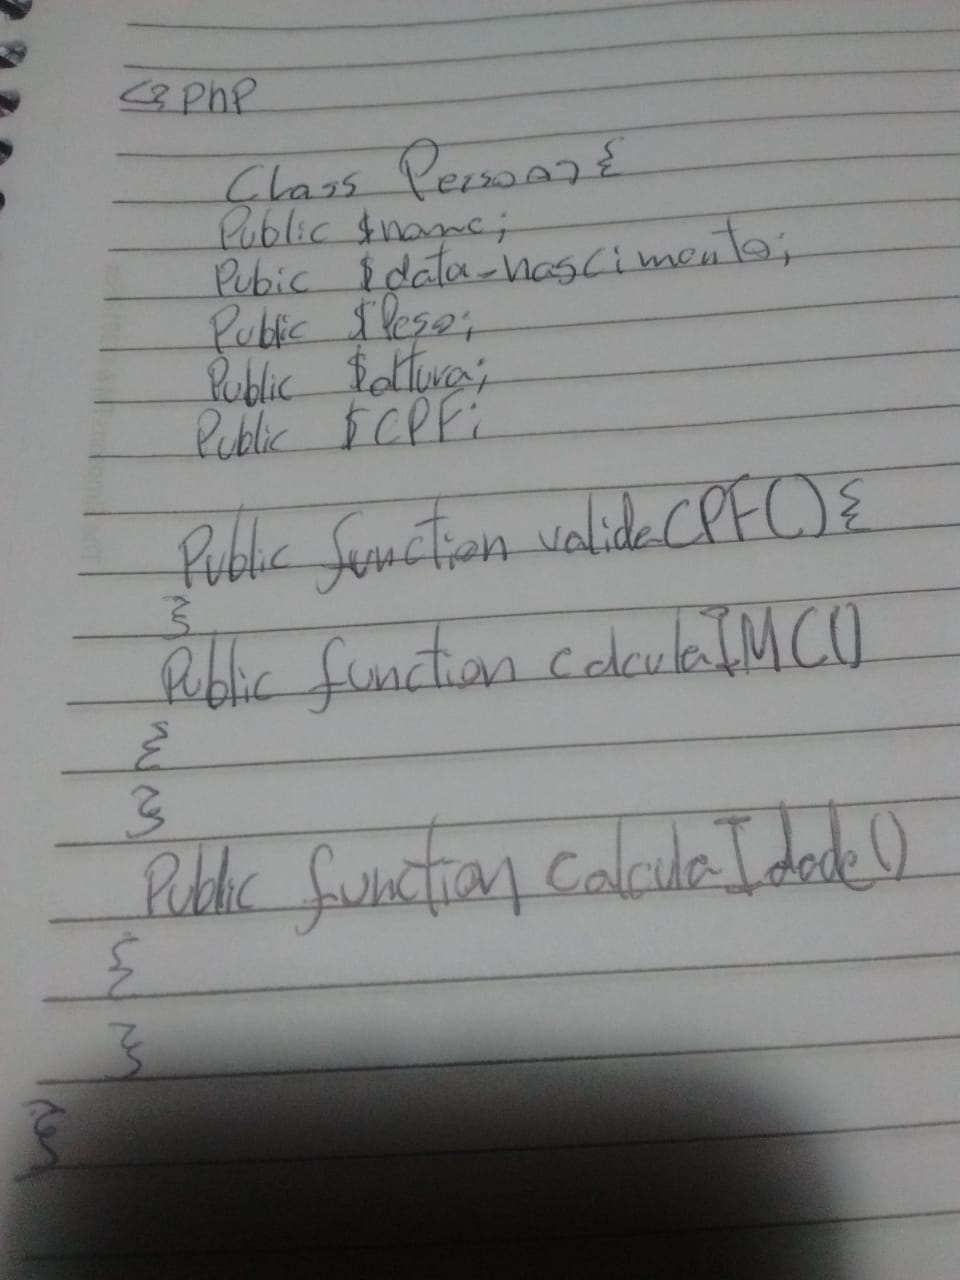 <? PhP
Class Person {
Public $name;
Pubic $data-nascimento;
Public $Peso;
Public $altura;
Public $CPF;
Public function valideCPF() {
}
Public function calculaIMC()
{
}
Public function calculaIdade()
{
}
}